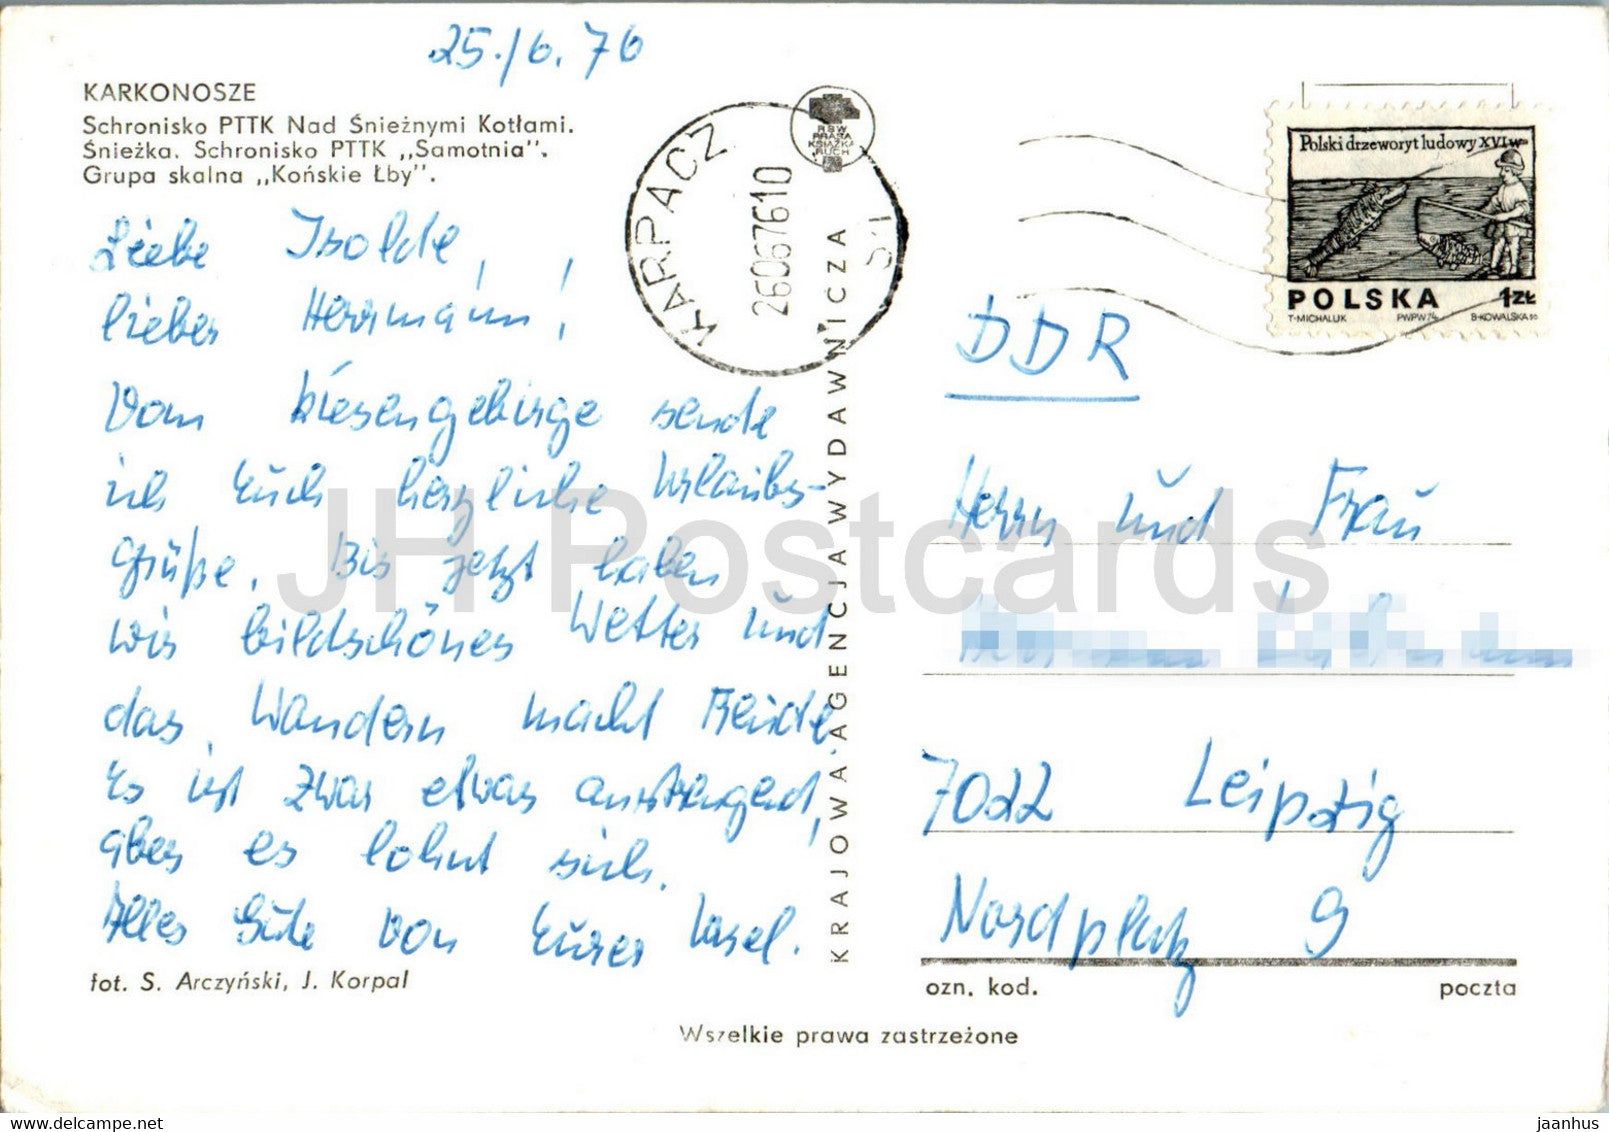 25./6. 76
KARKONOSZE
Schronisko PTTK Nad Śnieżnymi Kotłami.
Śnieżka. Schronisko PTTK „Samotnia".
Grupa skalna „Końskie Łby".
Liebe Isolde,
lieber Herrmann!
Vom Riesengebirge sende
ich Euch herzliche Urlaubs-
grüße. Bis jetzt haben
wir bildschönes Wetter und
das Wandern macht Freude.
Es ist zwar etwas anstrengend,
aber es lohnt sich.
Alles Gute von Eurer Ursel.
fot. S. Arczyński, J. Korpal
KARPACZ
26067610
RSW
PRASA
KSIĄŻKA
RUCH
KRAJOWA AGENCJA WYDAWNICZA
Polski drzeworyt ludowy XVI w
POLSKA 1ZŁ
T·MICHALUK PWPW 74 B·KOWALSKA sc
DDR
Herrn und Frau
7022 Leipzig
Nordplatz 9
ozn. kod. poczta
Wszelkie prawa zastrzeżone
JH Postcards
delcampe.net
jaanhus